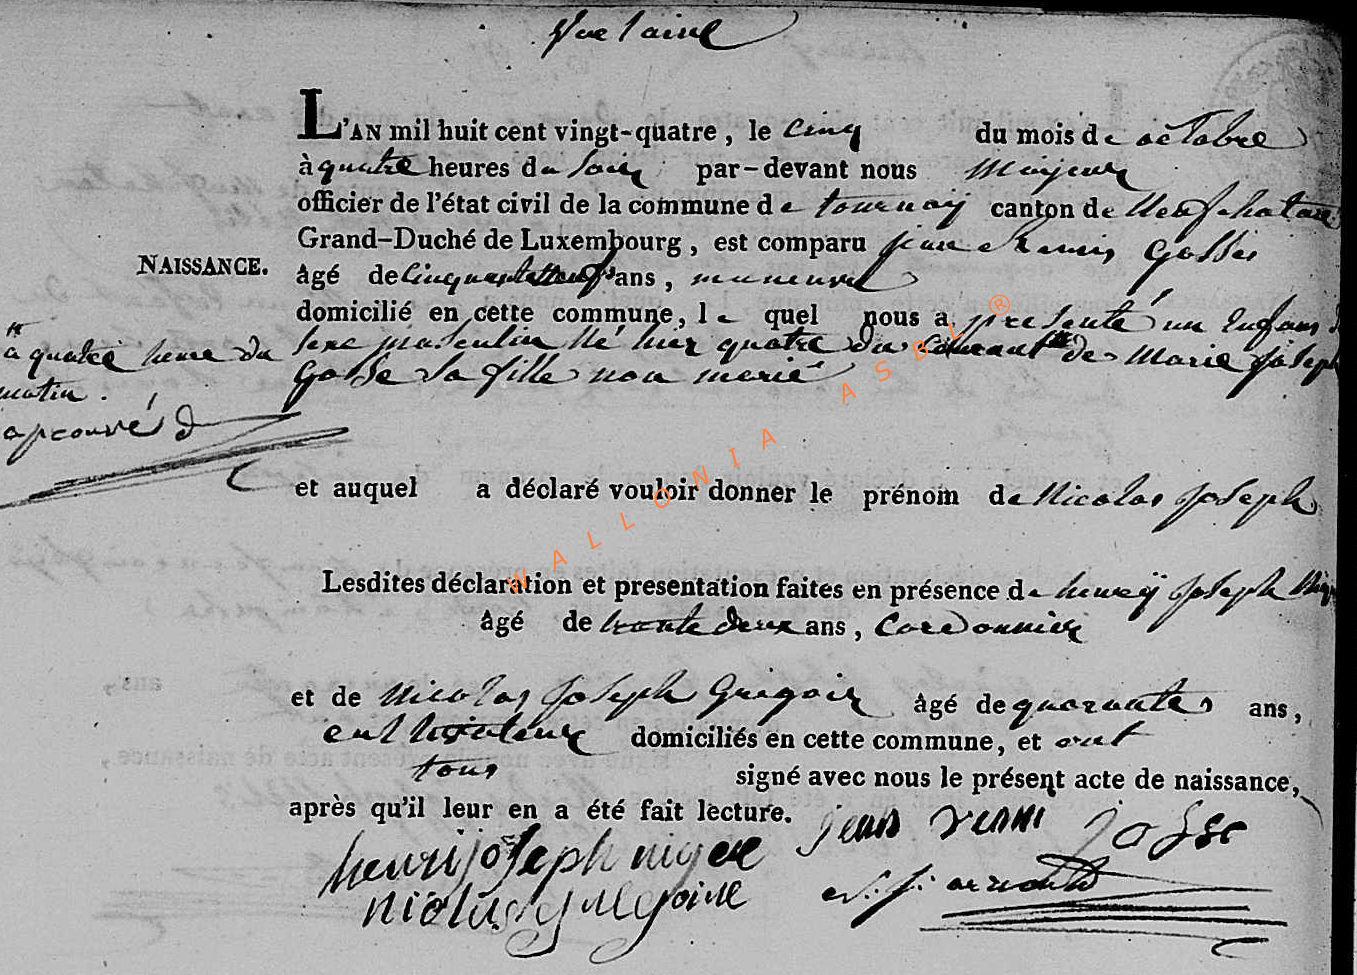 L'AN mil huit cent vingt-quatre, le cinq du mois de octobre
à quatre heures du soir par-devant nous Majeur
officier de l'état civil de la commune de tournay canton de Neufchateau
Grand-Duché de Luxembourg, est comparu jean Gosses
NAISSANCE.
âgé de ans,
domicilié en cette commune, le quel nous a presenté un Enfans d
sexe masculin Né hier quatre du courant de Marie Joseph
à quatre heure du
matin.
Gosse sa fille non marié
aprouvé
et auquel a déclaré vouloir donner le prénom de Nicolas Joseph
Lesdites déclaration et presentation faites en présence de henry Joseph
âgé de trente deux ans, Cordonnier
et de Nicolas Joseph Gregoir âgé de quarantes ans,
cultivateur domiciliés en cette commune, et ont
tous signé avec nous le présent acte de naissance,
après qu'il leur en a été fait lecture.
jean gosse
henri joseph
nicolas gregoire
WALLONIA ASBL ®